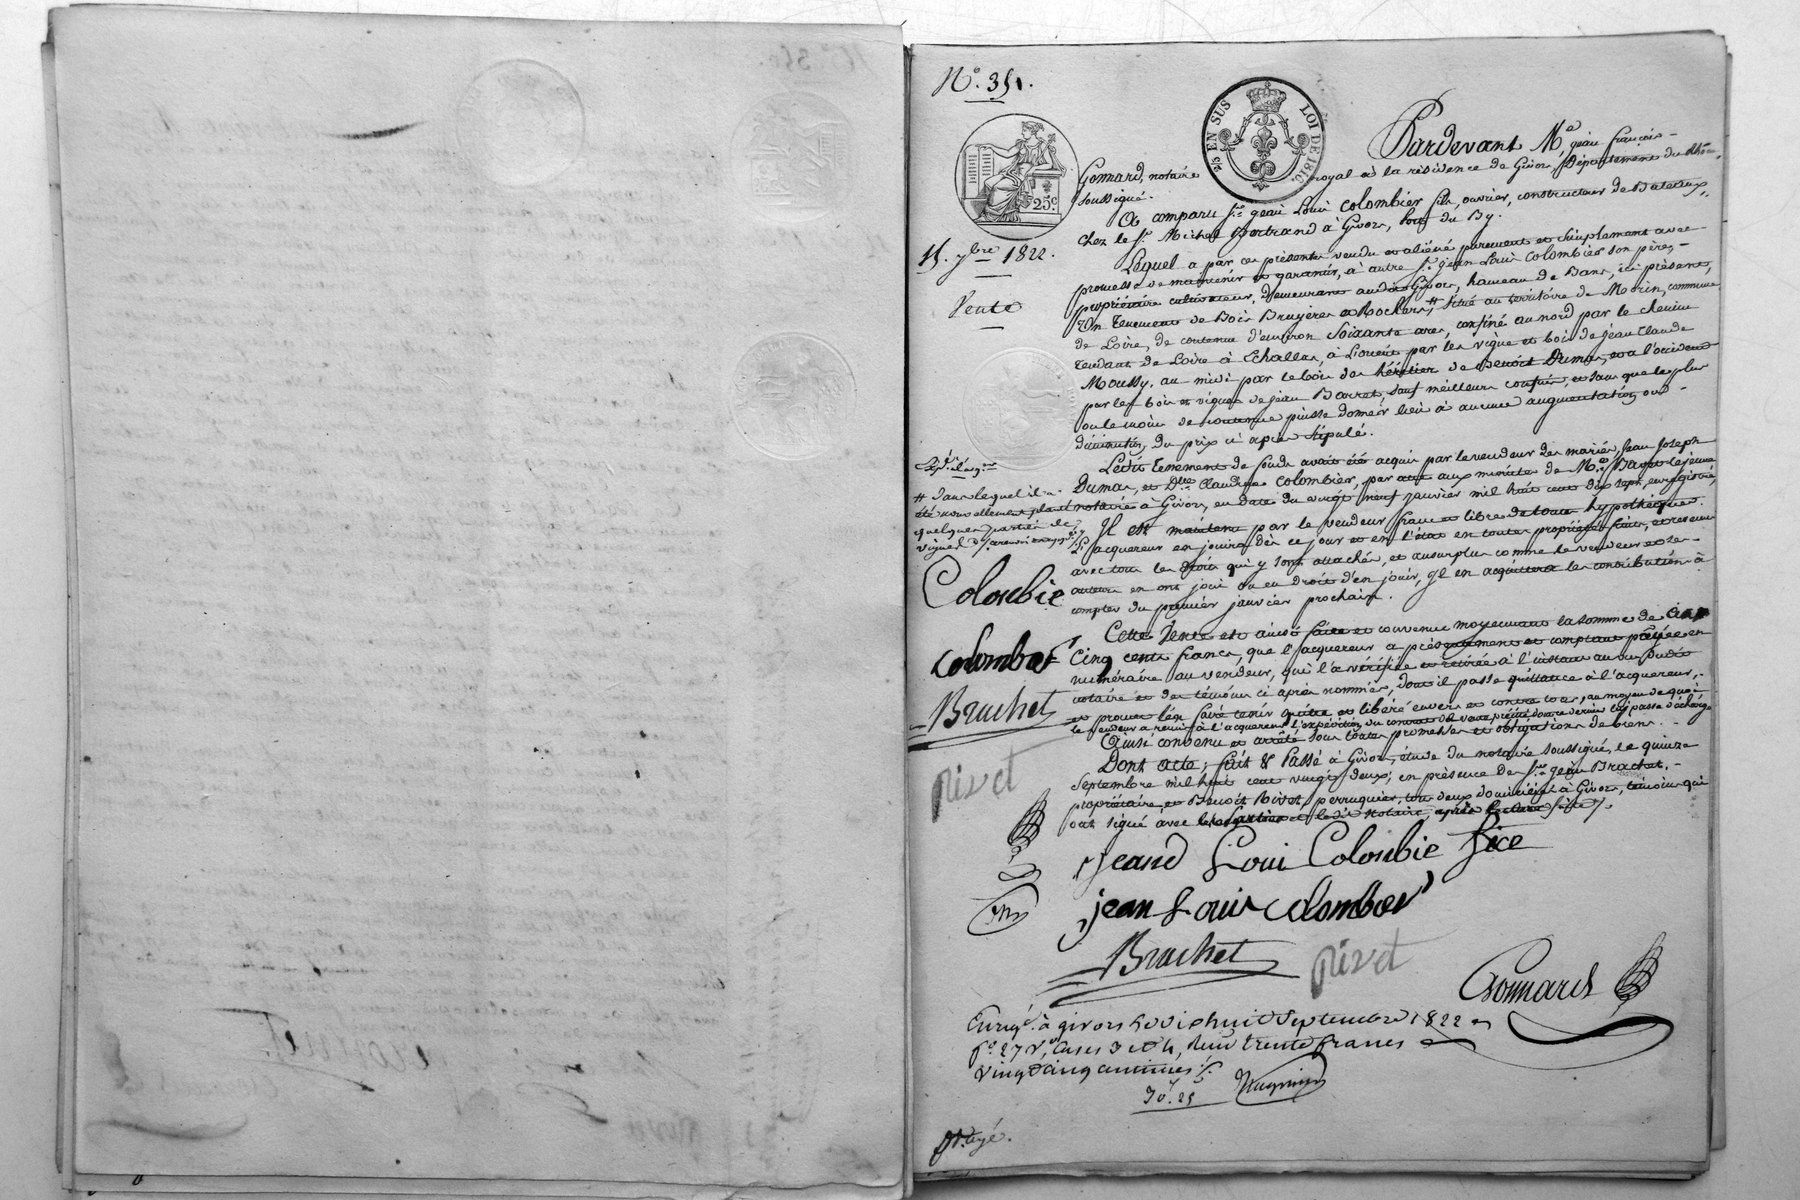 N.o 351.
25 EN SUS LOI DE 1816
25c
Pardevant M.e jean françois
Gonnard, notaire royal à la résidence de Givors, Département du Rhône,
soussigné.
A comparu s.r jean Louis Colombier fils, ouvrier, constructeur de Bateaux,
chez le s.r Michel Bertrand à Givors, port du By.
15. 7bre 1822.
Vente
Lequel a par ces présentes vendu et aliéné purement et simplement avec
promesse de maintenir et garantir, à autre s.r jean Louis Colombier son père,
propriétaire cultivateur, demeurant audit Givors, hameau de Bans, ici présent,
Un Tenement de Bois Bruyères et Rochers, # situé au territoire de Morin, commune
de Loire, de contenue d'environ soixante ares, confiné au nord par le chemin
tendant de Loire à Echallas, à l'orient par les vigne et bois de jean Claude
Moussy, au midi par le bois des héritiers de Benoit Dumas, et à l'occident
par les bois et vignes de jean Barret, sauf meilleurs confins, et sans que le plus
ou le moins de contenue puisse donner lieu à aucune augmentation ou
diminution du prix ci après stipulé.
Ledit Tenement de fonds avait été acquis par le vendeur des mariés Jean Joseph
Dumas, et D.lle Claudine Colombier, par acte aux minutes de M.e Bayet le jeune
notaire à Givors, en date du vingt neuf janvier mil huit cent dix sept, enregistré,
# dans lequel il a
été nouvellement planté
quelques parties de
vignes
Il est maintenu par le vendeur franc et libre de toute hypothèque.
L'acquereur en jouira dès ce jour et en l'état en toutes propriétés fruits, et revenus
avec tous les droits qui y sont attachés, et au surplus comme le vendeur et ses
auteurs en ont joui ou eu droit d'en jouir, Il en acquittera les contributions à
compter du premier janvier prochain.
Colonbie
Colombier
Brachet
Rivet
Cette Vente est ainsi faite et convenue moyennant la somme de
Cinq cents francs, que l'acquereur a présentement et comptant payée en
numéraire au vendeur, qui l'a vérifiée et retirée à l'instant au vu dudit
notaire et des témoins ci après nommés, dont il passe quittance à l'acquereur,
et promet l'en faire tenir quitte et libéré envers et contre tous, au moyen de quoi
le vendeur a remis à l'acquereur l'expédition du contrat de vente précité, dont ce dernier lui passe décharge
Ainsi convenu et arrêté sous toutes promesses et obligations de biens.
Dont acte; fait & Passé à Givors, étude du notaire soussigné, le quinze
Septembre mil huit cent vingt deux; en présence de s.rs jean Brachet,
propriétaire et Benoit Rivet, perruquier, tous deux domiciliés à Givors, témoins qui
ont signé avec les parties et ledit notaire, après lecture faite.
Jeand Loui Colonbie
jean Louis Colombier
Brachet Rivet
Gonnard
Enregé. à givors le dixhuit Septembre 1822
f.o 27 v.o, cases 3 et 4, Reçu trente francs
vingt cinq centimes
30. 25